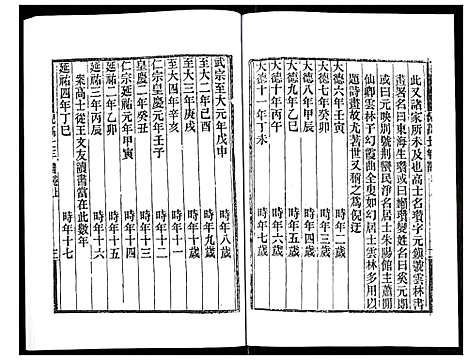 此又諸家所未及也高士名瓚字元鎮號雲林書
畫署名曰東海生瓚或曰懶瓚變姓名曰奚元朗
曰元映別號荆蠻民淨名居士朱陽館主蕭閒
仙卿雲林子幻霞曲全叟如幻居士雲林多用以
題詩畫故尤著世又稱之為倪迂
大德六年壬寅 時年二歲
大德七年癸卯 時年三歲
大德八年甲辰 時年四歲
大德九年乙巳 時年五歲
大德十年丙午 時年六歲
大德十一年丁未 時年七歲
武宗至大元年戊申 時年八歲
至大二年己酉 時年九歲
至大三年庚戌 時年十歲
至大四年辛亥 時年十一
仁宗皇慶元年壬子 時年十二
皇慶二年癸丑 時年十三
仁宗延祐元年甲寅 時年十四
延祐二年乙卯 時年十五
延祐三年丙辰 時年十六
案高士從王文友讀書當在此數年
延祐四年丁巳 時年十七